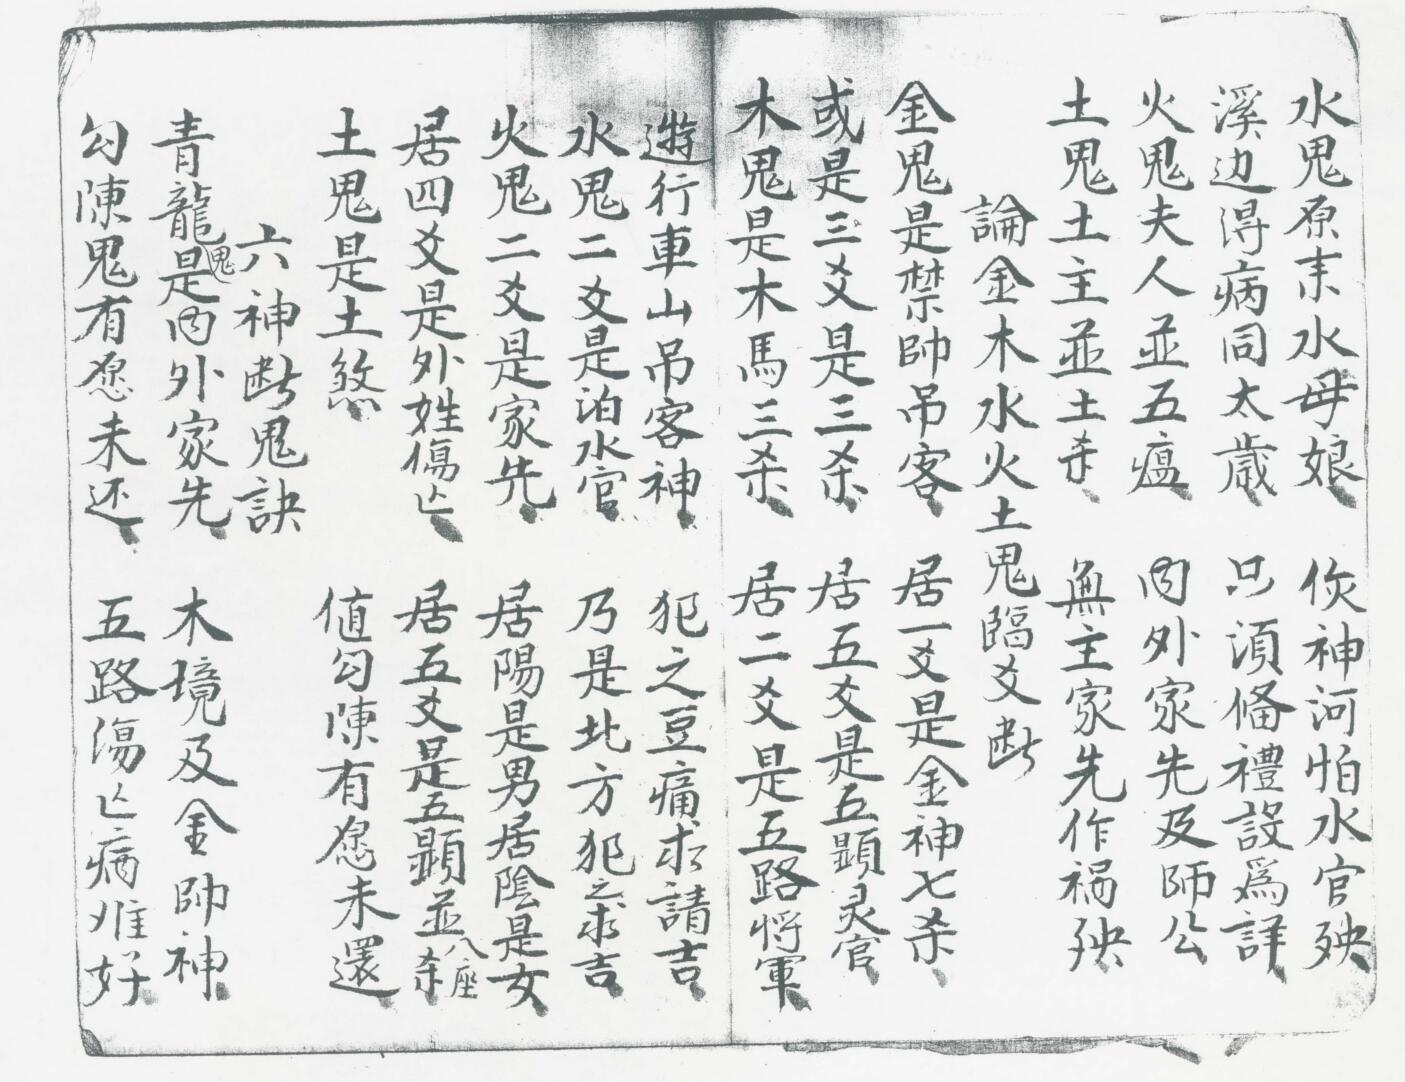 水鬼原来水母娘 伙神河怕水官殃
溪边得病同太歲 只須俻禮設爲詳
火鬼夫人並五瘟 内外家先及師公
土鬼土主並土杀 無主家先作禍殃
論金木水火土鬼臨爻断
金鬼是禁帥吊客 居一爻是金神七杀
或是三爻是三杀 居五爻是五顯灵官
木鬼是木馬三杀 居二爻是五路将軍
遊行車山吊客神 犯之豆痛求請吉
水鬼二爻是泊水官 乃是北方犯之求吉
火鬼二爻是家先 居陽是男居陰是女
居四爻是外姓傷亡 居五爻是五顯並八座杀
土鬼是土煞 值勾陳有愿未還
六神断鬼訣
青龍鬼是内外家先 木境及金帥神
勾陳鬼有愿未还 五路傷亡病难好